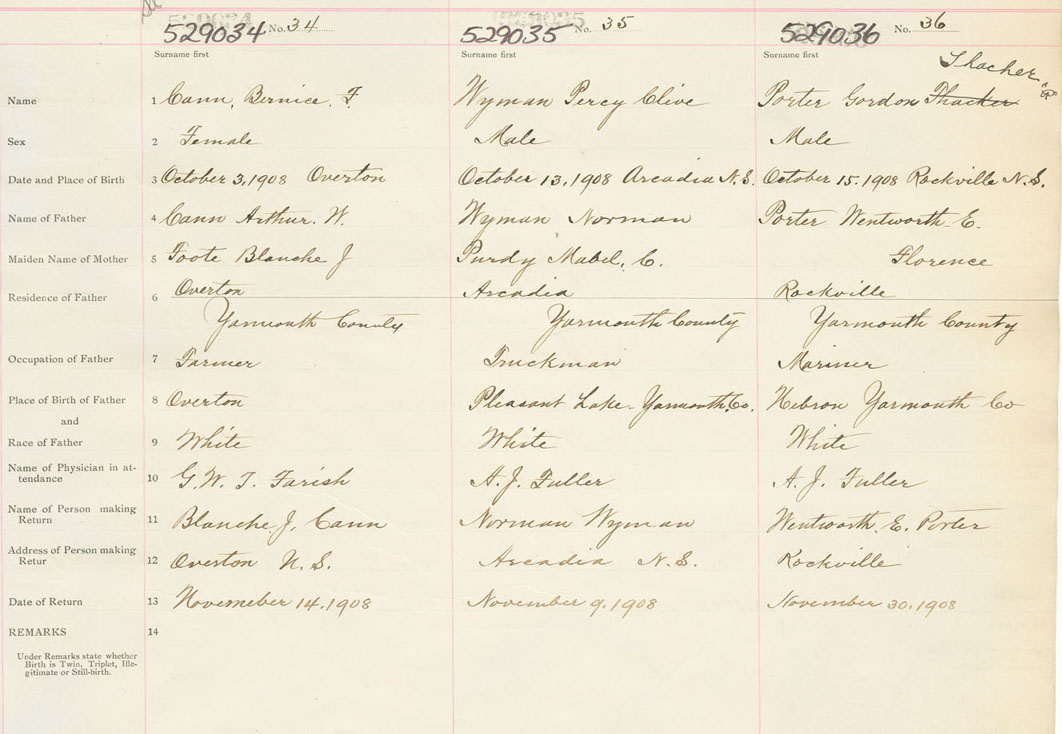 529034 No. 34 529035 No. 35 529036 No. 36
Surname first Surname first Surname first
Thacher
Name 1 Cann, Bernice. F Wyman Percy Clive Porter Gordon Thacker
Sex 2 Female Male Male
Date and Place of Birth 3 October 3, 1908 Overton October 13, 1908 Arcadia N.S. October 15, 1908 Rockville N.S.
Name of Father 4 Cann Arthur. W. Wyman Norman Porter Wentworth E.
Maiden Name of Mother 5 Foote Blanche J Purdy Mabel. C. Florence
Residence of Father 6 Overton Arcadia Rockville
Yarmouth County Yarmouth County Yarmouth County
Occupation of Father 7 Farmer Truckman Mariner
Place of Birth of Father 8 Overton Pleasant Lake Yarmouth Co. Hebron Yarmouth Co
and
Race of Father 9 White White White
Name of Physician in at-
tendance 10 G. W. T. Farish A. J. Fuller A. J. Fuller
Name of Person making
Return 11 Blanche J. Cann Norman Wyman Wentworth. E. Porter
Address of Person making
Retur 12 Overton N. S. Arcadia N. S. Rockville
Date of Return 13 Novemeber 14, 1908 November 9, 1908 November 30, 1908
REMARKS 14
Under Remarks state whether
Birth is Twin, Triplet, Ille-
gitimate or Still-birth.